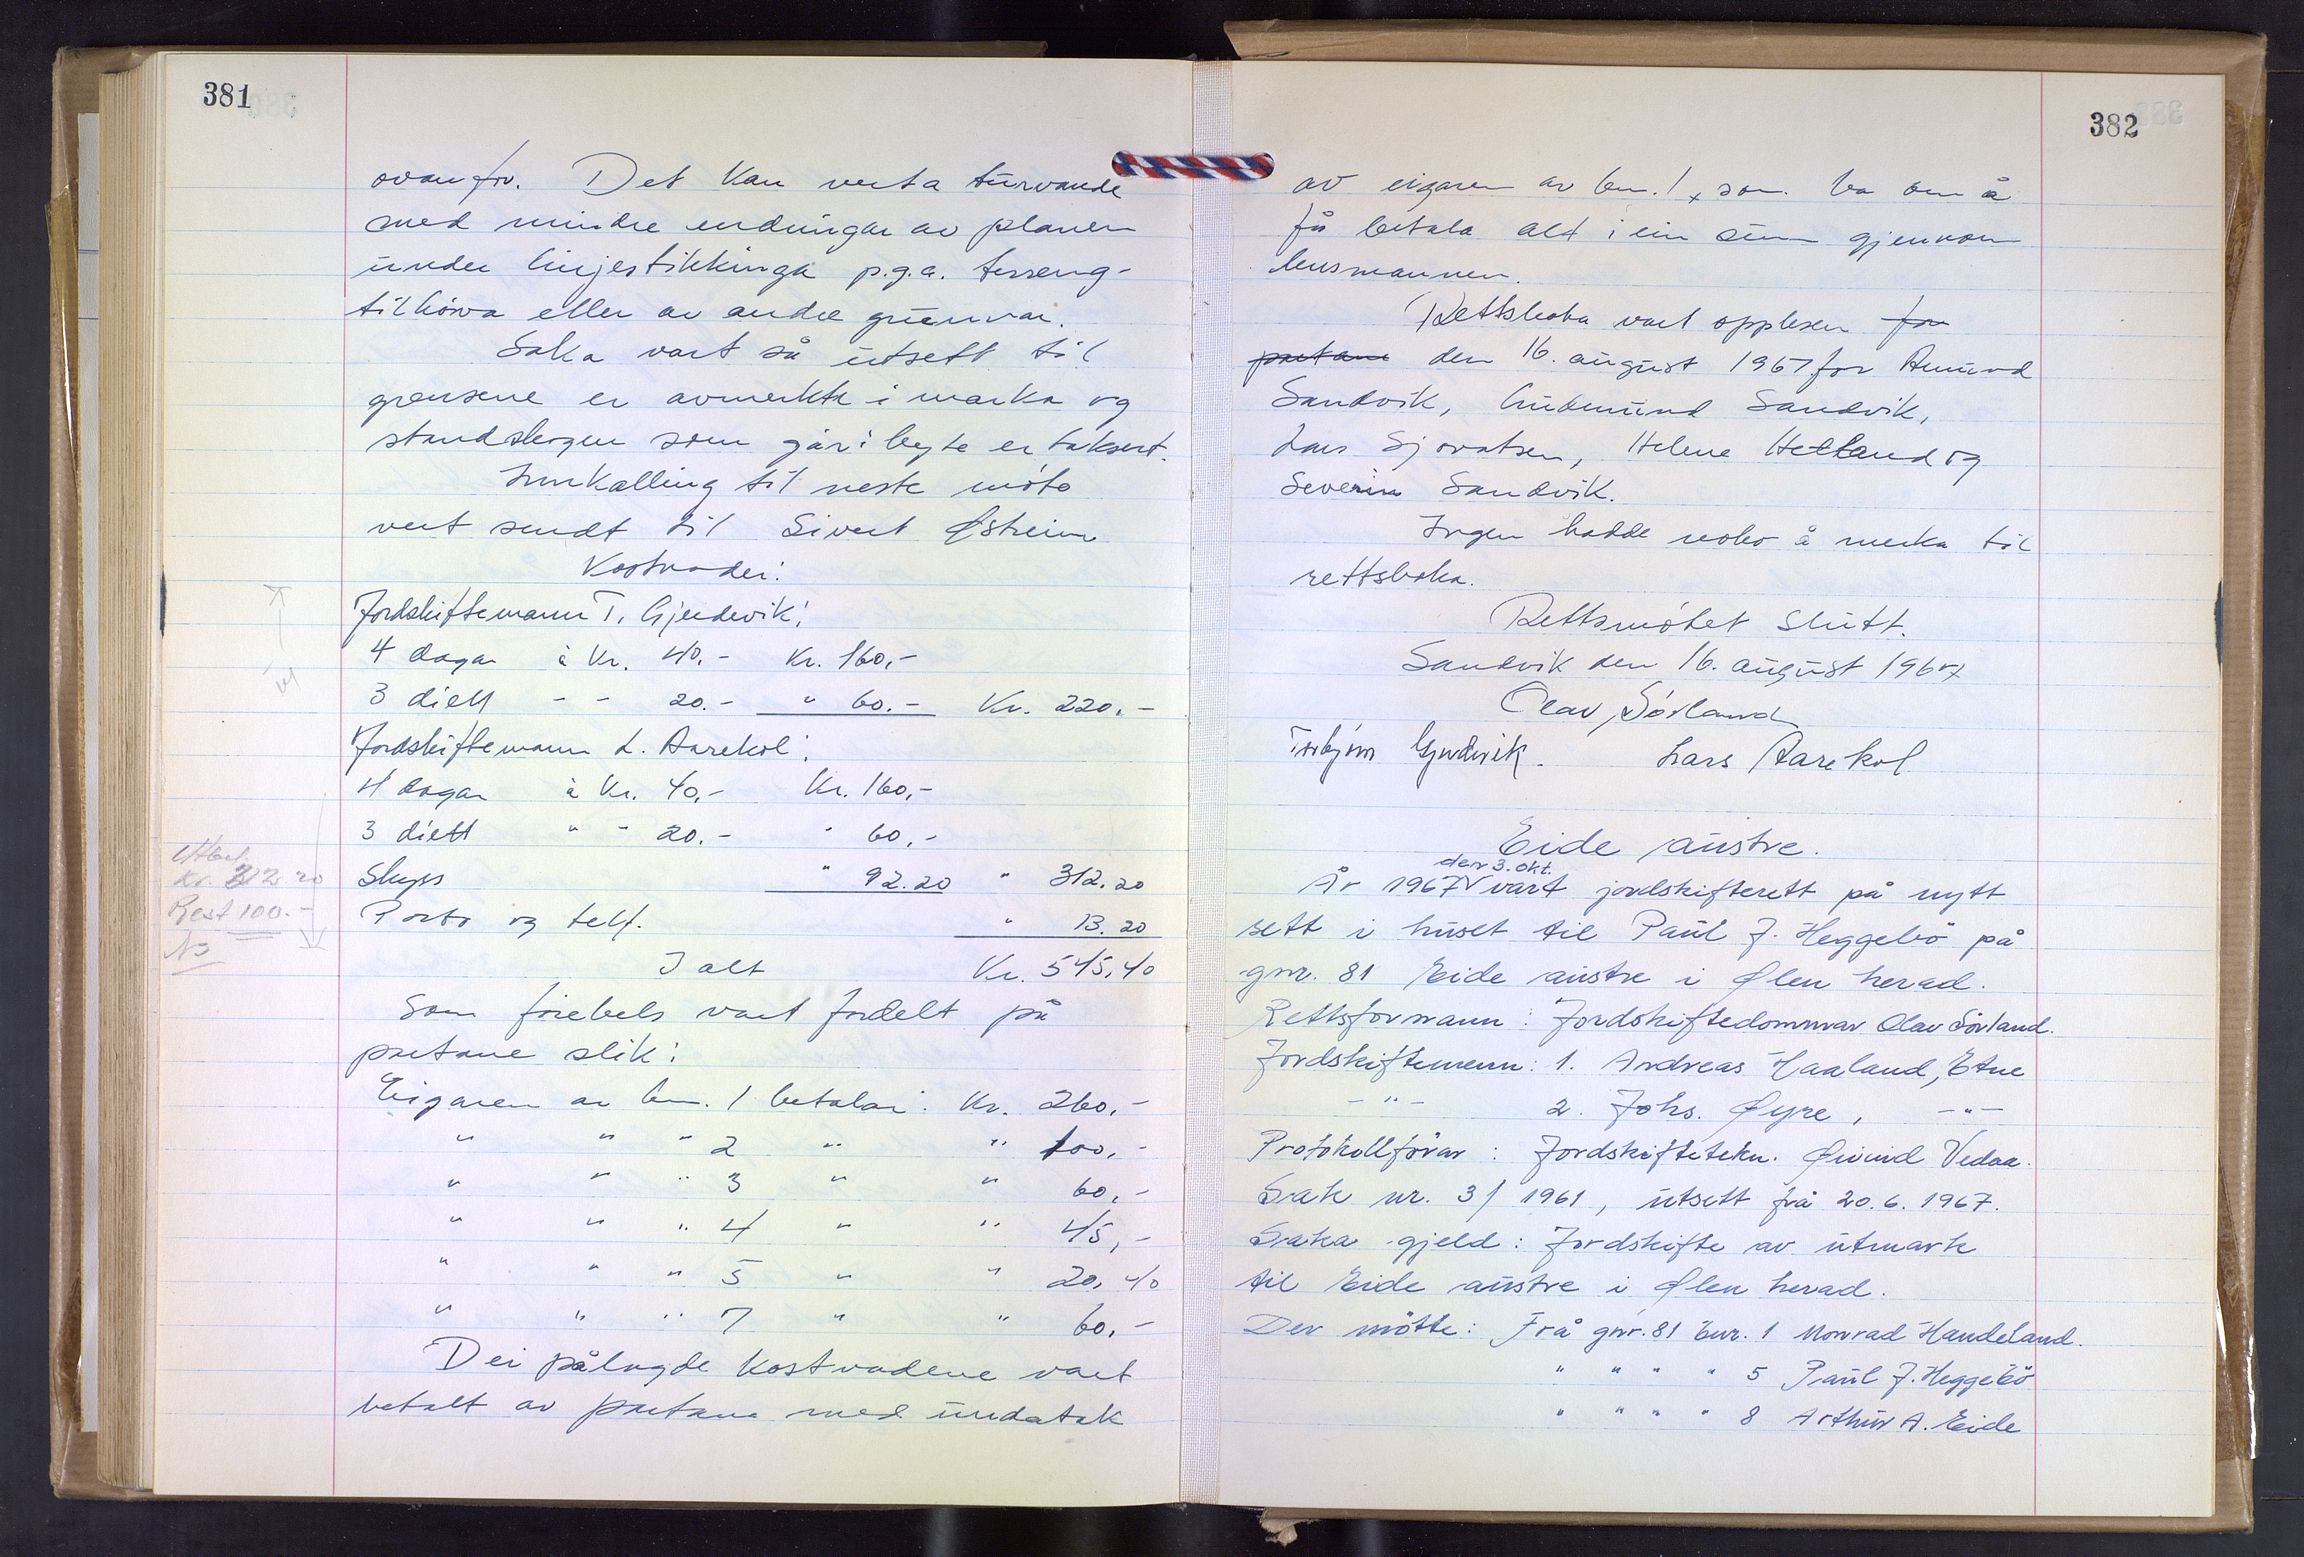 381
ovanfor. Det kan verta turvande
med mindre endringar av planen
under linjestikkinga p.g.a. terreng-
tilhøva eller av andre grunnar.
Saka vart så utsett til
grensene er avmerkte i marka og
standskogen som går i byte er taksert.
Innkalling til neste møte
vert sendt til Sivert Østheim
Kostnader:
Jordskiftemann T. Gjerdevik:
4 dagar à kr. 40,- kr. 160,-
3 diett - - 20.- " 60.- Kr. 220.-
Jordskiftemann L. Aarekol:
4 dagar à kr. 40,- Kr. 160,-
3 diett " - 20.- " 60,-
Utbet.
Skyss " 92.20 " 312.20
Kr. 212.20
Porto og telf. " 13.20
Rest 100.-
I alt Kr. 545,40
Som førebels vart fordelt på
partane slik:
Eigaren av bnr. 1 betalar: Kr. 260,-
" " " 2 " " 100,-
" " " 3 " " 60,-
" " " 4 " " 45,-
" " " 5 " " 20,40
" " " 7 " " 60,-
Dei pålagde kostnadene vart
betalt av partane med undatak
382
av eigaren av bnr. 1, som ba om å
få betala alt i ein sum gjennom
lensmannen.
Rettsboka vart opplesen for
partane den 16. august 1967 for Amund
Sandvik, Gudmund Sandvik,
Lars Sjovatsen, Helene Hetland og
Severin Sandvik.
Ingen hadde noko å merka til
rettsboka.
Rettsmøtet slutt.
Sandvik den 16. august 1967
Olav Sørland
Torbjørn Gjerdevik. Lars Aarekol
Eide austre.
den 3. okt.
År 1967 vart jordskifterett på nytt
sett i huset til Paul J. Heggebø på
gnr. 81 Eide austre i Ølen herad.
Rettsformann: Jordskiftedommar Olav Sørland.
Jordskiftemenn: 1. Andreas Haaland, Etne
- " - 2. Johs. Øyre, - " -
Protokollførar: Jordskifteteku. Øivind Vedaa.
Sak nr. 3/1961, utsett frå 20.6.1967.
Saka gjeld: Jordskifte av utmark
til Eide austre i Ølen herad.
Der møtte: Frå gnr. 81 bnr. 1 Monrad Handeland.
" " " " 5 Paul J. Heggebø
" " " " 8 Arthur A. Eide